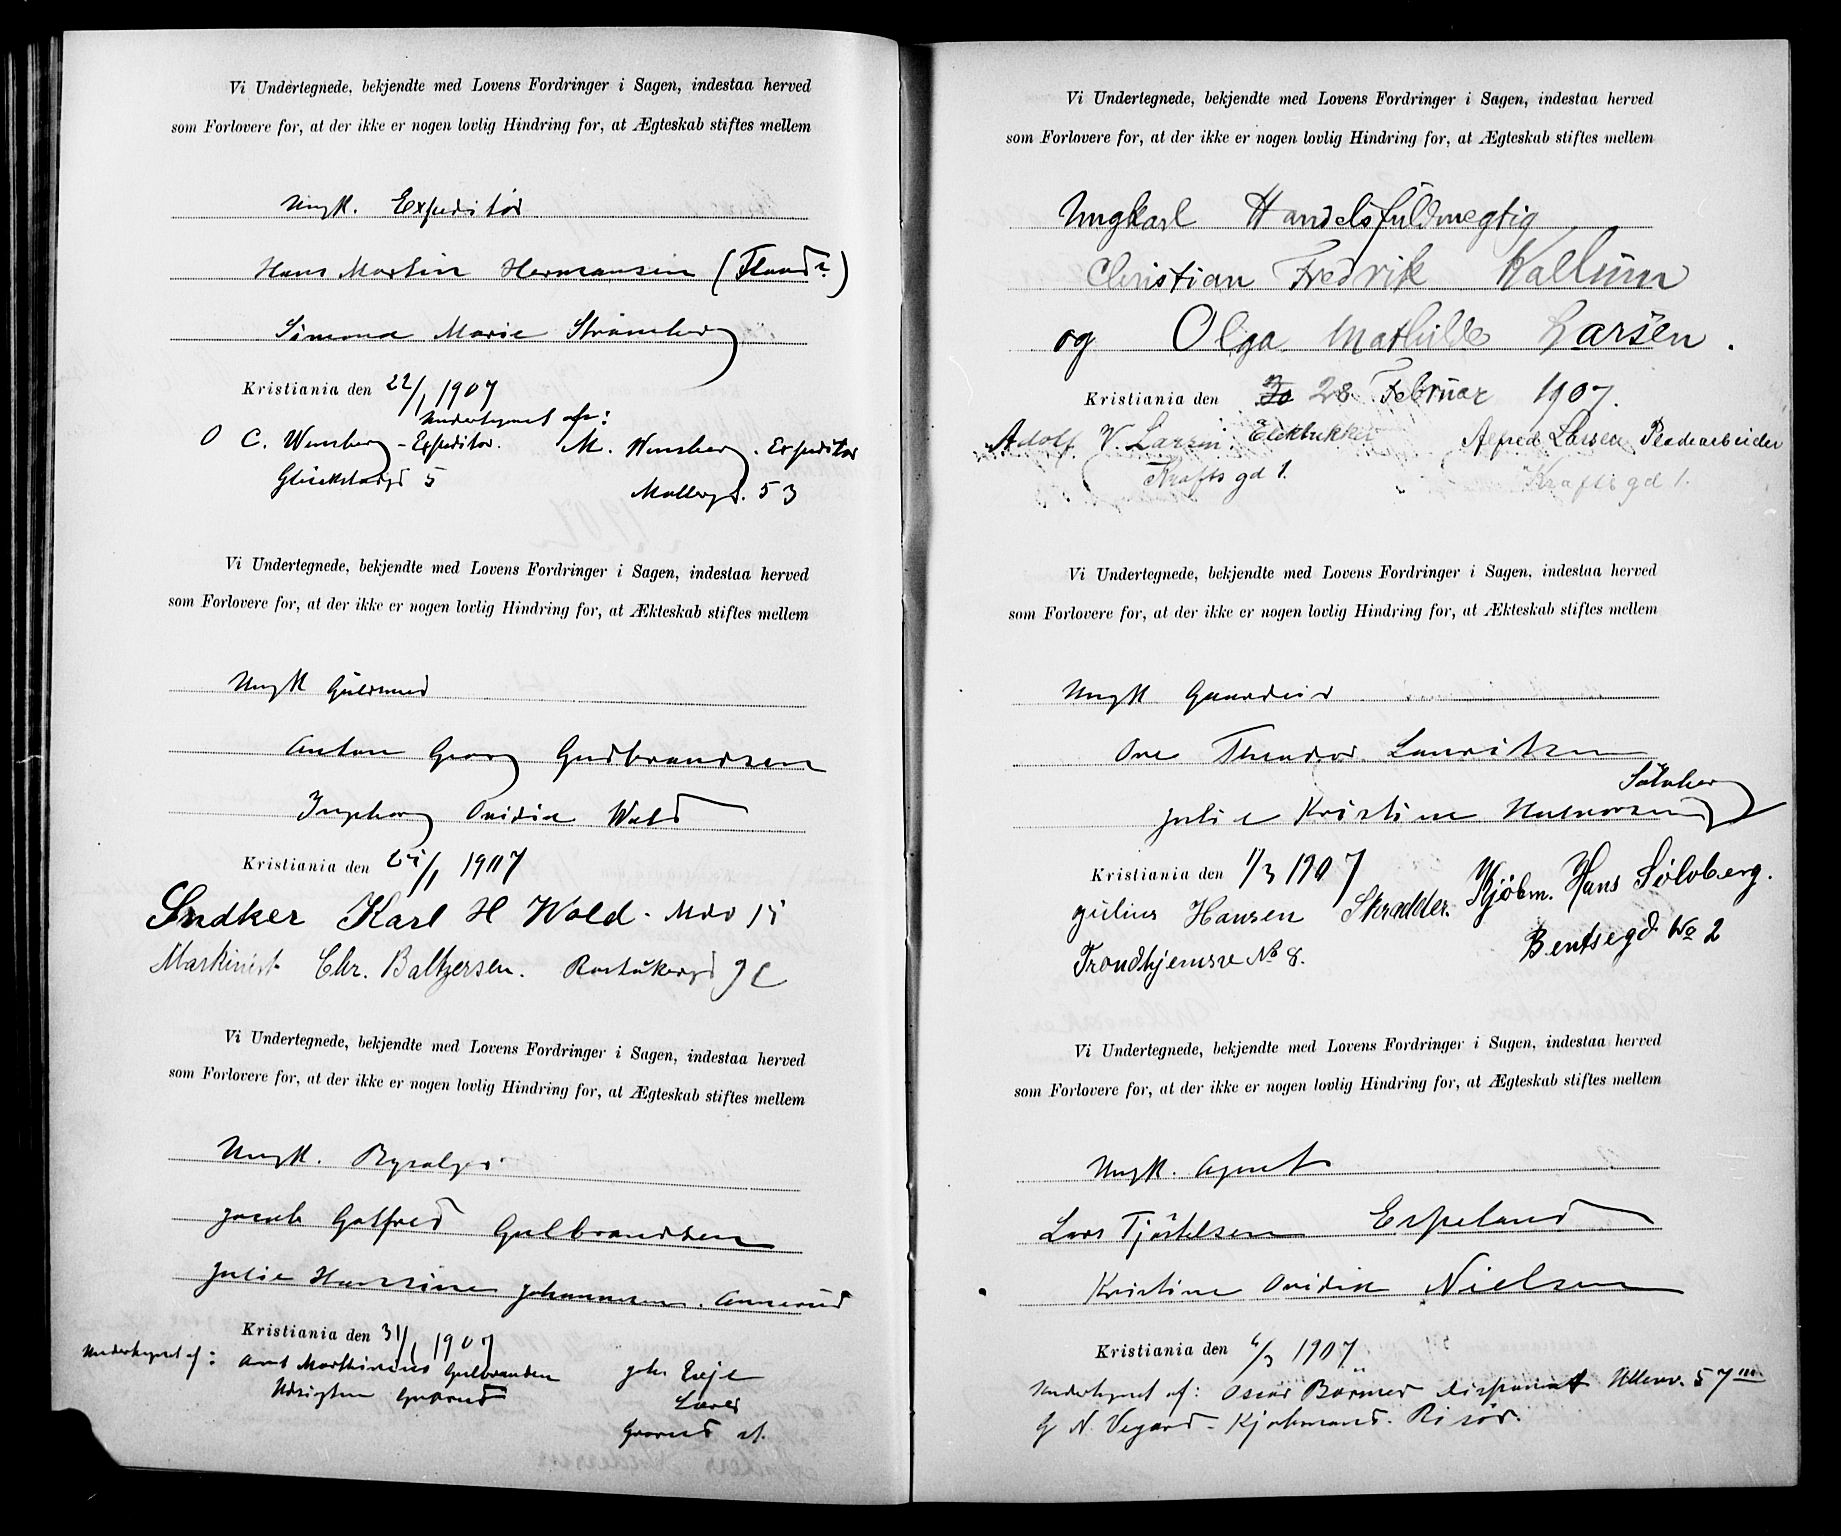 Vi Undertegnede, bekjendte med Lovens Fordringer i Sagen, indestaa herved
som Forlovere for, at der ikke er nogen lovlig Hindring for, at Ægteskab stiftes mellem
Ungk. Expeditør
Hans Martin Hermansen
Simona Marie Strømberg
Kristiania den 22/1 1907
Undertegnet af:
O C. Wensberg - Expeditør. M. Wensberg. Expeditør
5 Møllergd. 53
Vi Undertegnede, bekjendte med Lovens Fordringer i Sagen, indestaa herved
som Forlovere for, at der ikke er nogen lovlig Hindring for, at Ækteskab stiftes mellem
Ungk Guldsmed
Anton Georg Gudbrandsen
Ingeborg Ovidia Wold
Kristiania den /1 1907
Sndker Karl H Wold.
Maskinist Chr. Baltzersen.
Vi Undertegnede, bekjendte med Lovens Fordringer i Sagen, indestaa herved
som Forlovere for, at der ikke er nogen lovlig Hindring for, at Ægteskab stiftes mellem
Ungk.
Jacob Gotfred Gulbrandsen
Julie Hansine Johannesen. Ammerud
Kristiania den 31/1 1907
Undertegnet af: Martinius Gulbrandsen Joh. Evje
Grorud Lærer
Grorud st.
Vi Undertegnede, bekjendte med Lovens Fordringer i Sagen, indestaa herved
som Forlovere for, at der ikke er nogen lovlig Hindring for, at Ægteskab stiftes mellem
Ungkarl Handelsfuldmegtig
Christian Fredrik Kallum
og Olga Mathilde Larsen.
Kristiania den 28 Februar 1907.
Adolf V. Larsen Alfred Larsen Pladearbeider
Krafts gd 1. Krafts gd 1.
Vi Undertegnede, bekjendte med Lovens Fordringer i Sagen, indestaa herved
som Forlovere for, at der ikke er nogen lovlig Hindring for, at Ækteskab stiftes mellem
Ungk Gaardeier
Ove Theodor Lauritzen
Sølvberg
Julie Kristine Halvorsen
Kristiania den 1/3 1907
Julius Hansen Skrædder. Kjøbm. Hans Sølvberg.
Trondhjemsve No 8. Bentsegd. No 2
Vi Undertegnede, bekjendte med Lovens Fordringer i Sagen, indestaa herved
som Forlovere for, at der ikke er nogen lovlig Hindring for, at Ægteskab stiftes mellem
Ungk. Agent
Lars Tjøstelsen Espeland
Kristine Ovidia Nielsen
Kristiania den /3 1907
Undertegnet af: Oscar Disponent Ullev. 57 III
G N. Vegard - Kjøbmand. Risør.